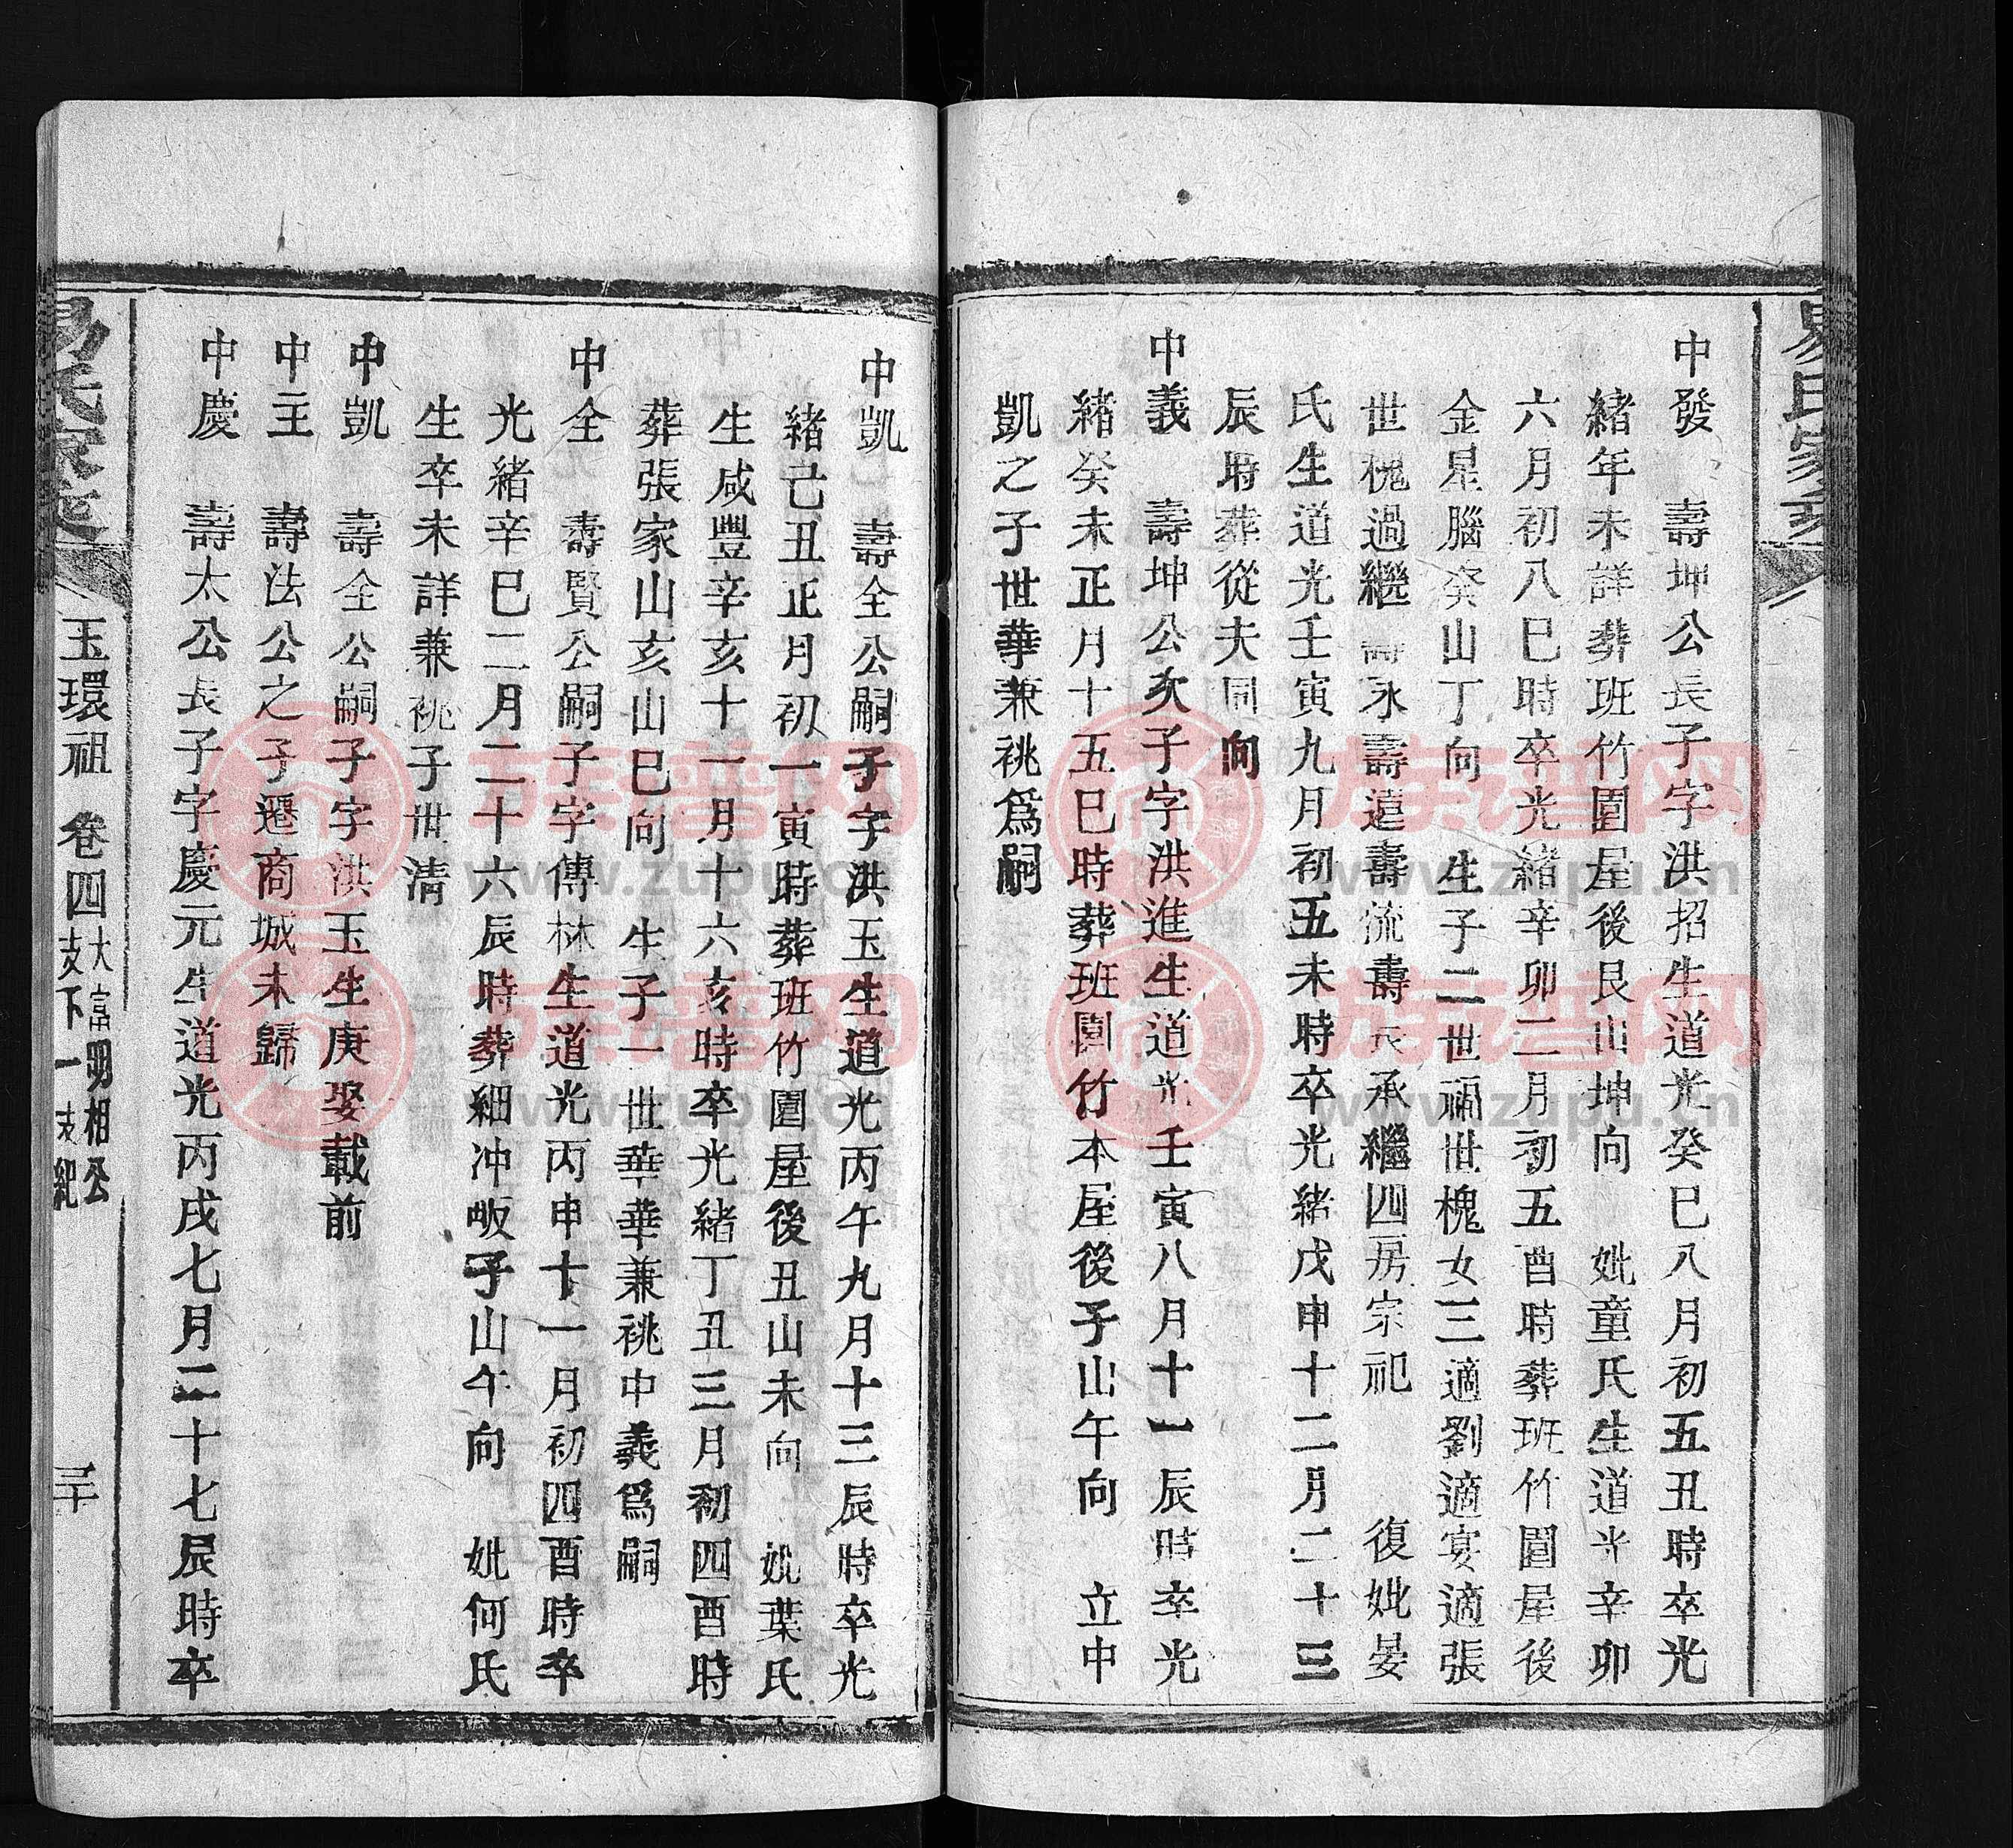 中發　壽坤公長子字洪招生道光癸巳八月初五丑時卒光
緒年未詳葬班竹園屋後艮山坤向　妣童氏生道光辛卯
六月初八巳時卒光緒辛卯二月初五酉時葬班竹園屋後
金星腦癸山丁向　生子二世福世槐女三適劉適宴適張
世槐過繼壽永壽遠壽流壽長承繼四房宗祀　復妣晏
氏生道光壬寅九月初五未時卒光緒戊申十二月二十三
辰時葬從夫同向
中義　壽坤公次子字洪進生道光壬寅八月十一辰時卒光
緒癸未正月十五巳時葬班園竹本屋後子山午向　立中
凱之子世華兼祧爲嗣
中凱　壽全公嗣子字洪玉生道光丙午九月十三辰時卒光
緒己丑正月初一寅時葬班竹園屋後丑山未向　妣葉氏
生咸豐辛亥十一月十六亥時卒光緒丁丑三月初四酉時
葬張家山亥山巳向　生子一世華華兼祧中義爲嗣
中全　壽賢公嗣子字傳林生道光丙申十一月初四酉時卒
光緒辛巳二月二十六辰時葬細冲畈子山午向　妣何氏
生卒未詳兼祧子世清
中凱　壽全公嗣子字洪玉生庚娶載前
中主　壽法公之子遷商城未歸
中慶　壽太公長子字慶元生道光丙戌七月二十七辰時卒
易氏家
玉環祖　卷四
大富羽相公
支下一支紀
三十
族譜网
www.zupu.cn
族譜网
www.zupu.cn
族譜网
www.zupu.cn
族譜网
www.zupu.cn